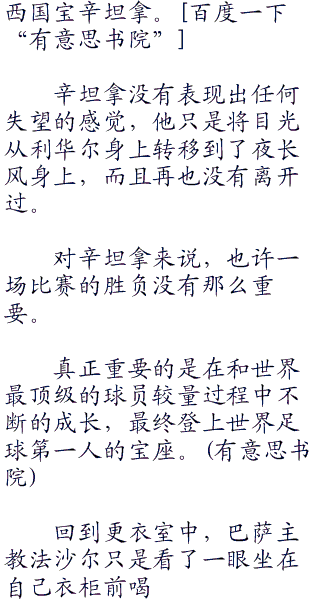 西国宝辛坦拿。[百度一下
“有意思书院”]
辛坦拿没有表现出任何
失望的感觉，他只是将目光
从利华尔身上转移到了夜长
风身上，而且再也没有离开
过。
对辛坦拿来说，也许一
场比赛的胜负没有那么重
要。
真正重要的是在和世界
最顶级的球员较量过程中不
断的成长，最终登上世界足
球第一人的宝座。(有意思书
院)
回到更衣室中，巴萨主
教法沙尔只是看了一眼坐在
自己衣柜前喝